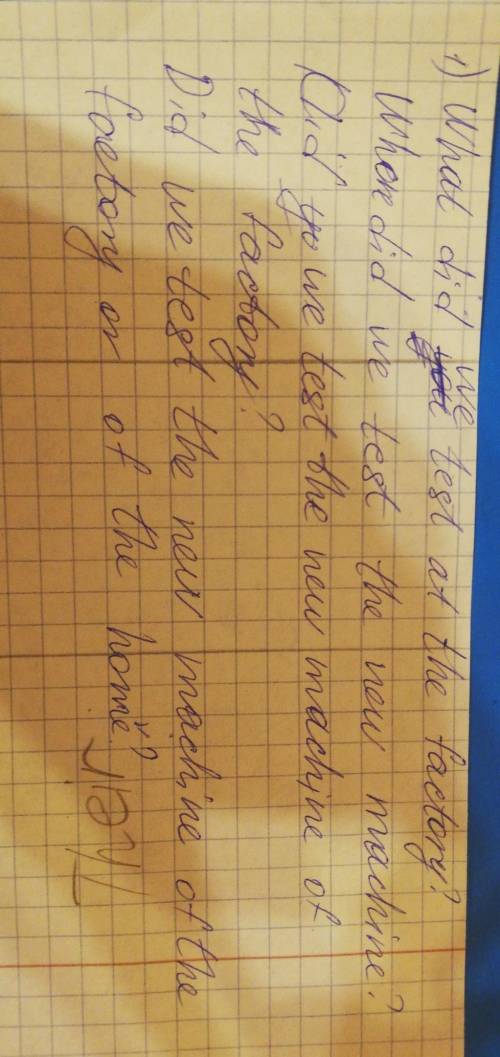 1) What did we test at the factory?
When did we test the new machine?
Did we test the new machine of
the factory?
Did we test the new machine of the
factory or of the home?